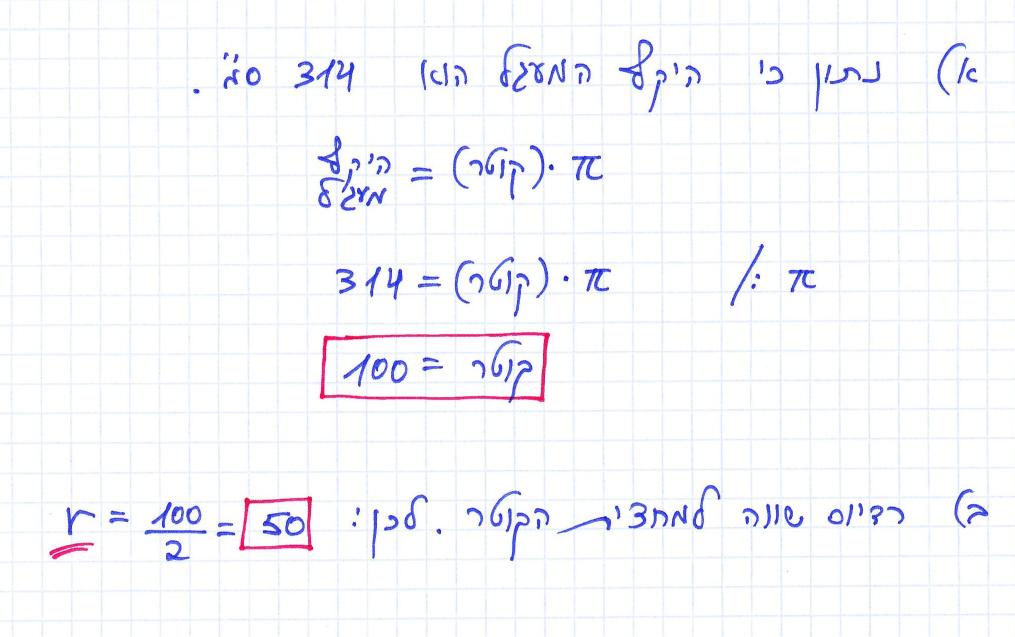 א) נתון כי היקף המעגל הוא 314 ס"מ.
היקף מעגל = (קוטר) · π
314 = (קוטר) · π /: π
100 = קוטר
ב) רדיוס שווה למחצית הקוטר. לכן: r = 100/2 = 50